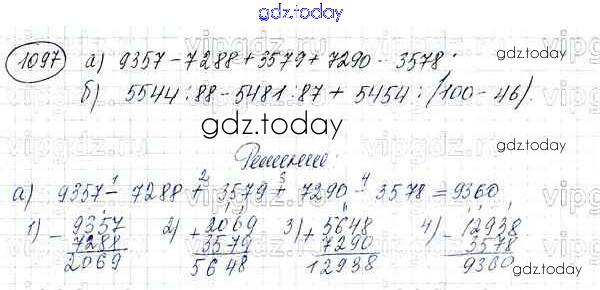 gdz.today
1097 а) 9357 - 7288 + 3579 + 7290 - 3578.
gdz.today
б) 5544 : 88 - 5481 : 87 + 5454 : (100 - 46).
gdz.today
Решение:
1 2 3 4
а) 9357 - 7288 + 3579 + 7290 - 3578 = 9360
1) - 9357 2) + 2069 3) + 5648 4) - 12938
7288 3579 7290 3578
2069 5648 12938 9360
gdz.today
gdz.today